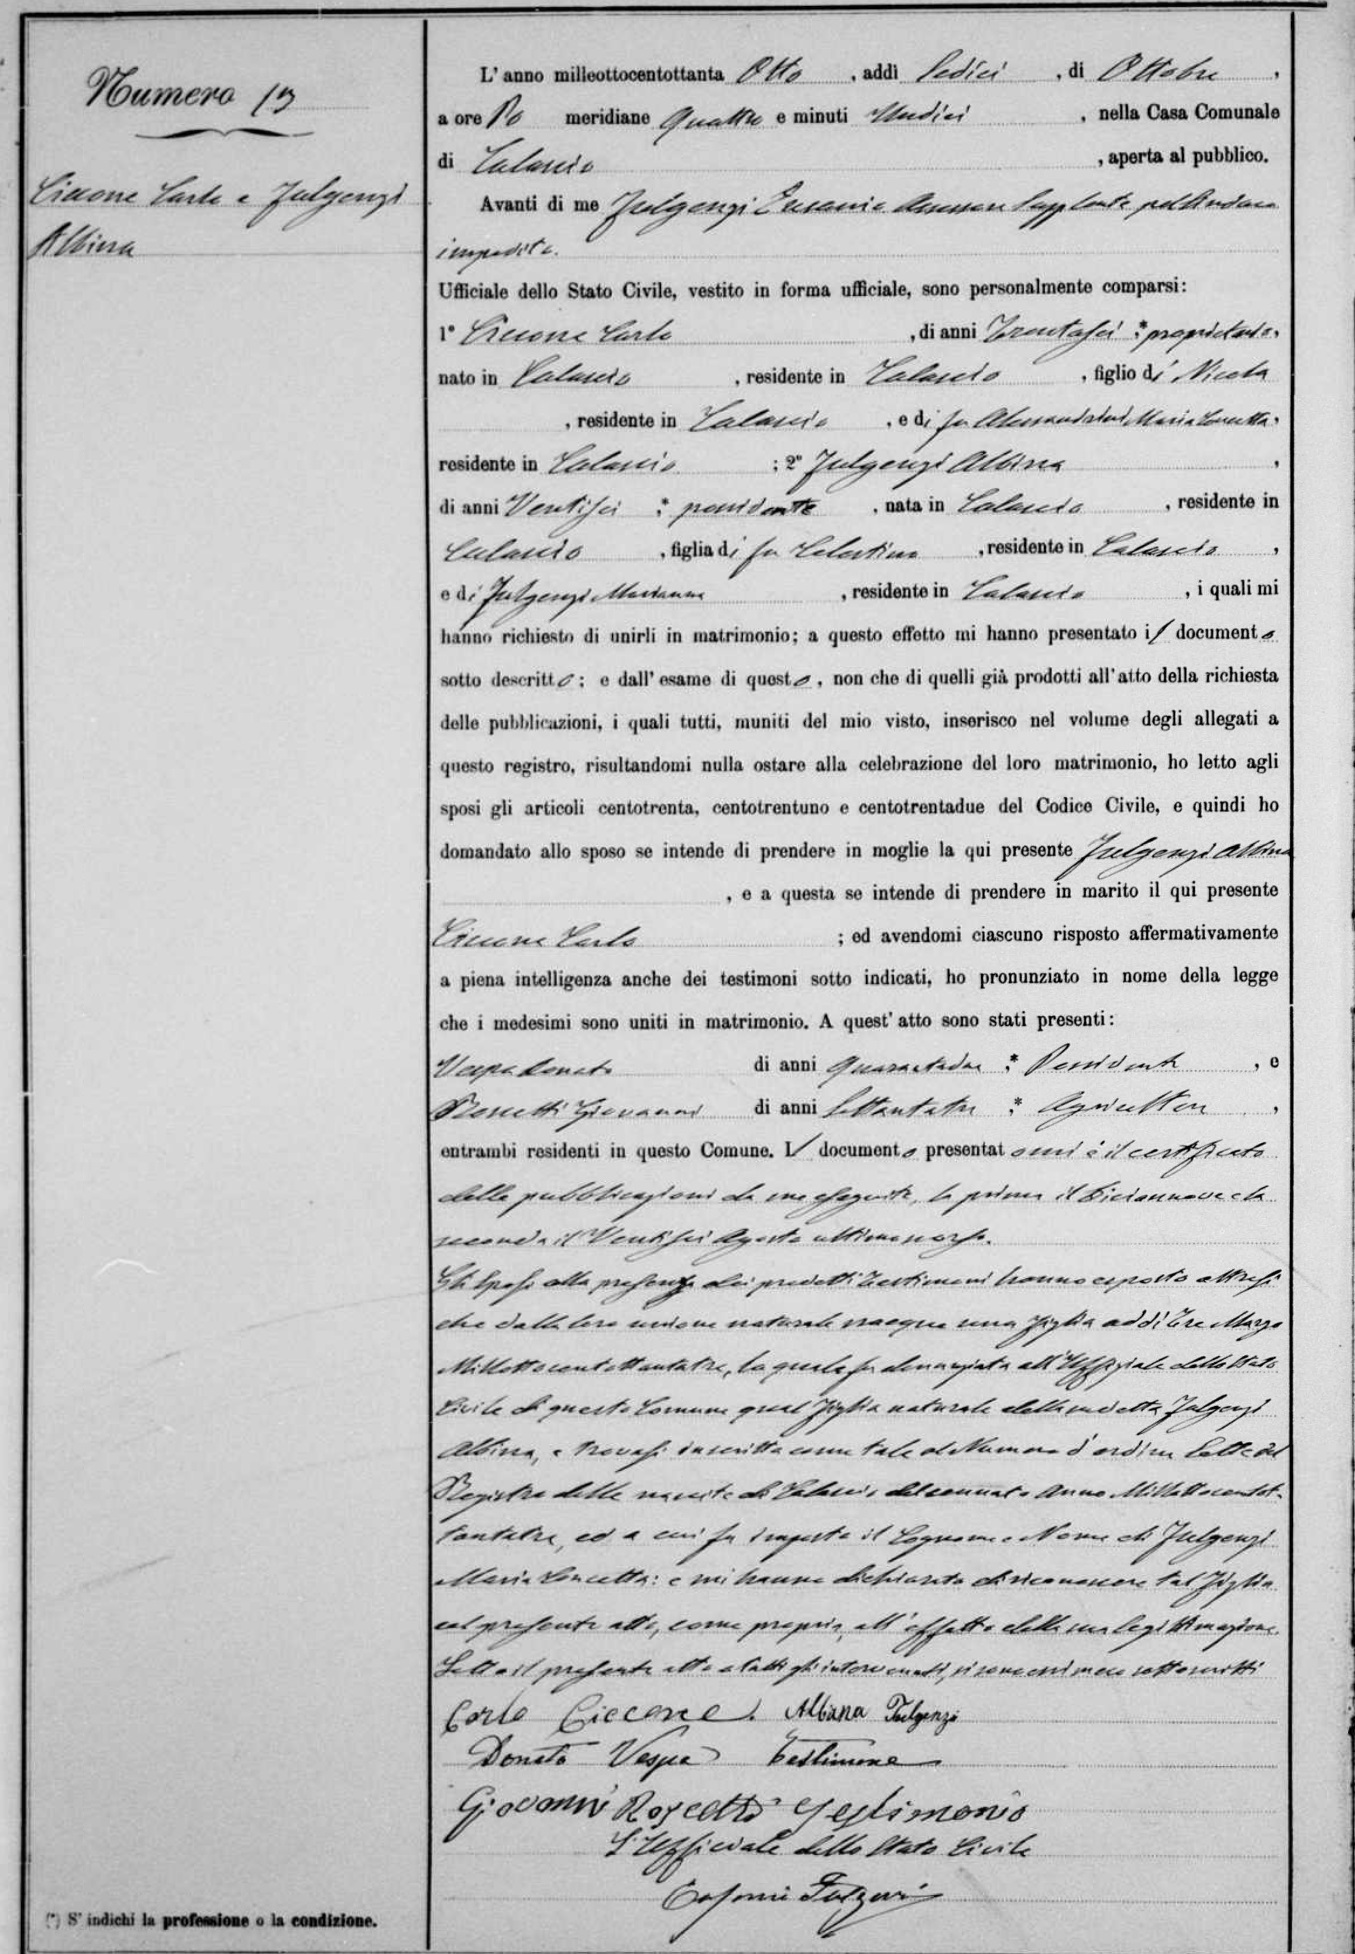 Numero 13
Ciccone Carlo e Fulgenzi
Albina
L'anno milleottocentottanta Otto, addì Sedici, di Ottobre,
a ore Po meridiane quattro e minuti Undici, nella Casa Comunale
di Calascio, aperta al pubblico.
Avanti di me Fulgenzi Assessore Supplente pel Sindaco
impedito.
Ufficiale dello Stato Civile, vestito in forma ufficiale, sono personalmente comparsi:
1° Ciccone Carlo, di anni Trentasei;* proprietario,
nato in Calascio, residente in Calascio, figlio di Nicola
, residente in Calascio, e di fu Alessandrini Maria Concetta,
residente in Calascio; 2° Fulgenzi Albina,
di anni Ventisei;* possidente, nata in Calascio, residente in
Calascio, figlia di fu Celestino, residente in Calascio,
e di Fulgenzi Marianna, residente in Calascio, i quali mi
hanno richiesto di unirli in matrimonio; a questo effetto mi hanno presentato il documento
sotto descritto; e dall'esame di questo, non che di quelli già prodotti all'atto della richiesta
delle pubblicazioni, i quali tutti, muniti del mio visto, inserisco nel volume degli allegati a
questo registro, risultandomi nulla ostare alla celebrazione del loro matrimonio, ho letto agli
sposi gli articoli centotrenta, centotrentuno e centotrentadue del Codice Civile, e quindi ho
domandato allo sposo se intende di prendere in moglie la qui presente Fulgenzi Albina
, e a questa se intende di prendere in marito il qui presente
Ciccone Carlo; ed avendomi ciascuno risposto affermativamente
a piena intelligenza anche dei testimoni sotto indicati, ho pronunziato in nome della legge
che i medesimi sono uniti in matrimonio. A quest'atto sono stati presenti:
Vespa Donato di anni quarantadue;* Possidente, e
Roscetti Giovanni di anni Settantatre;* Agricoltore,
entrambi residenti in questo Comune. Il documento presentatomi è il certificato
delle pubblicazioni da me eseguite, la prima il Diciannove e la
seconda il Ventisei Agosto ultimo scorso.
Gli Sposi alla presenza dei predetti Testimoni hanno esposto altresì
che dalla loro unione naturale nacque una figlia addì Tre Marzo
Millottocentottantatre, la quale fu denunziata all'Uffiziale dello Stato
Civile di questo Comune qual figlia naturale della sudetta Fulgenzi
Albina, e trovasi inscritta come tale al Numero d'ordine Sette del
Registro delle nascite di Calascio del sennato Anno Millottocentot-
tantatre, ed a cui fu imposto il Cognome e Nome di Fulgenzi
Maria Concetta: e mi hanno dichiarato di riconoscere tal figlia
col presente atto, come propria, all'effetto della sua legittimazione.
Letto il presente atto a tutti gli intervenuti, si sono essi meco sottoscritti
Carlo Ciccone. Albina Fulgenzi
Donato Vespa testimone
Giovanni Roscetti Testimonio
L'Ufficiale dello Stato Civile
Fulgenzi
(*) S'indichi la professione o la condizione.